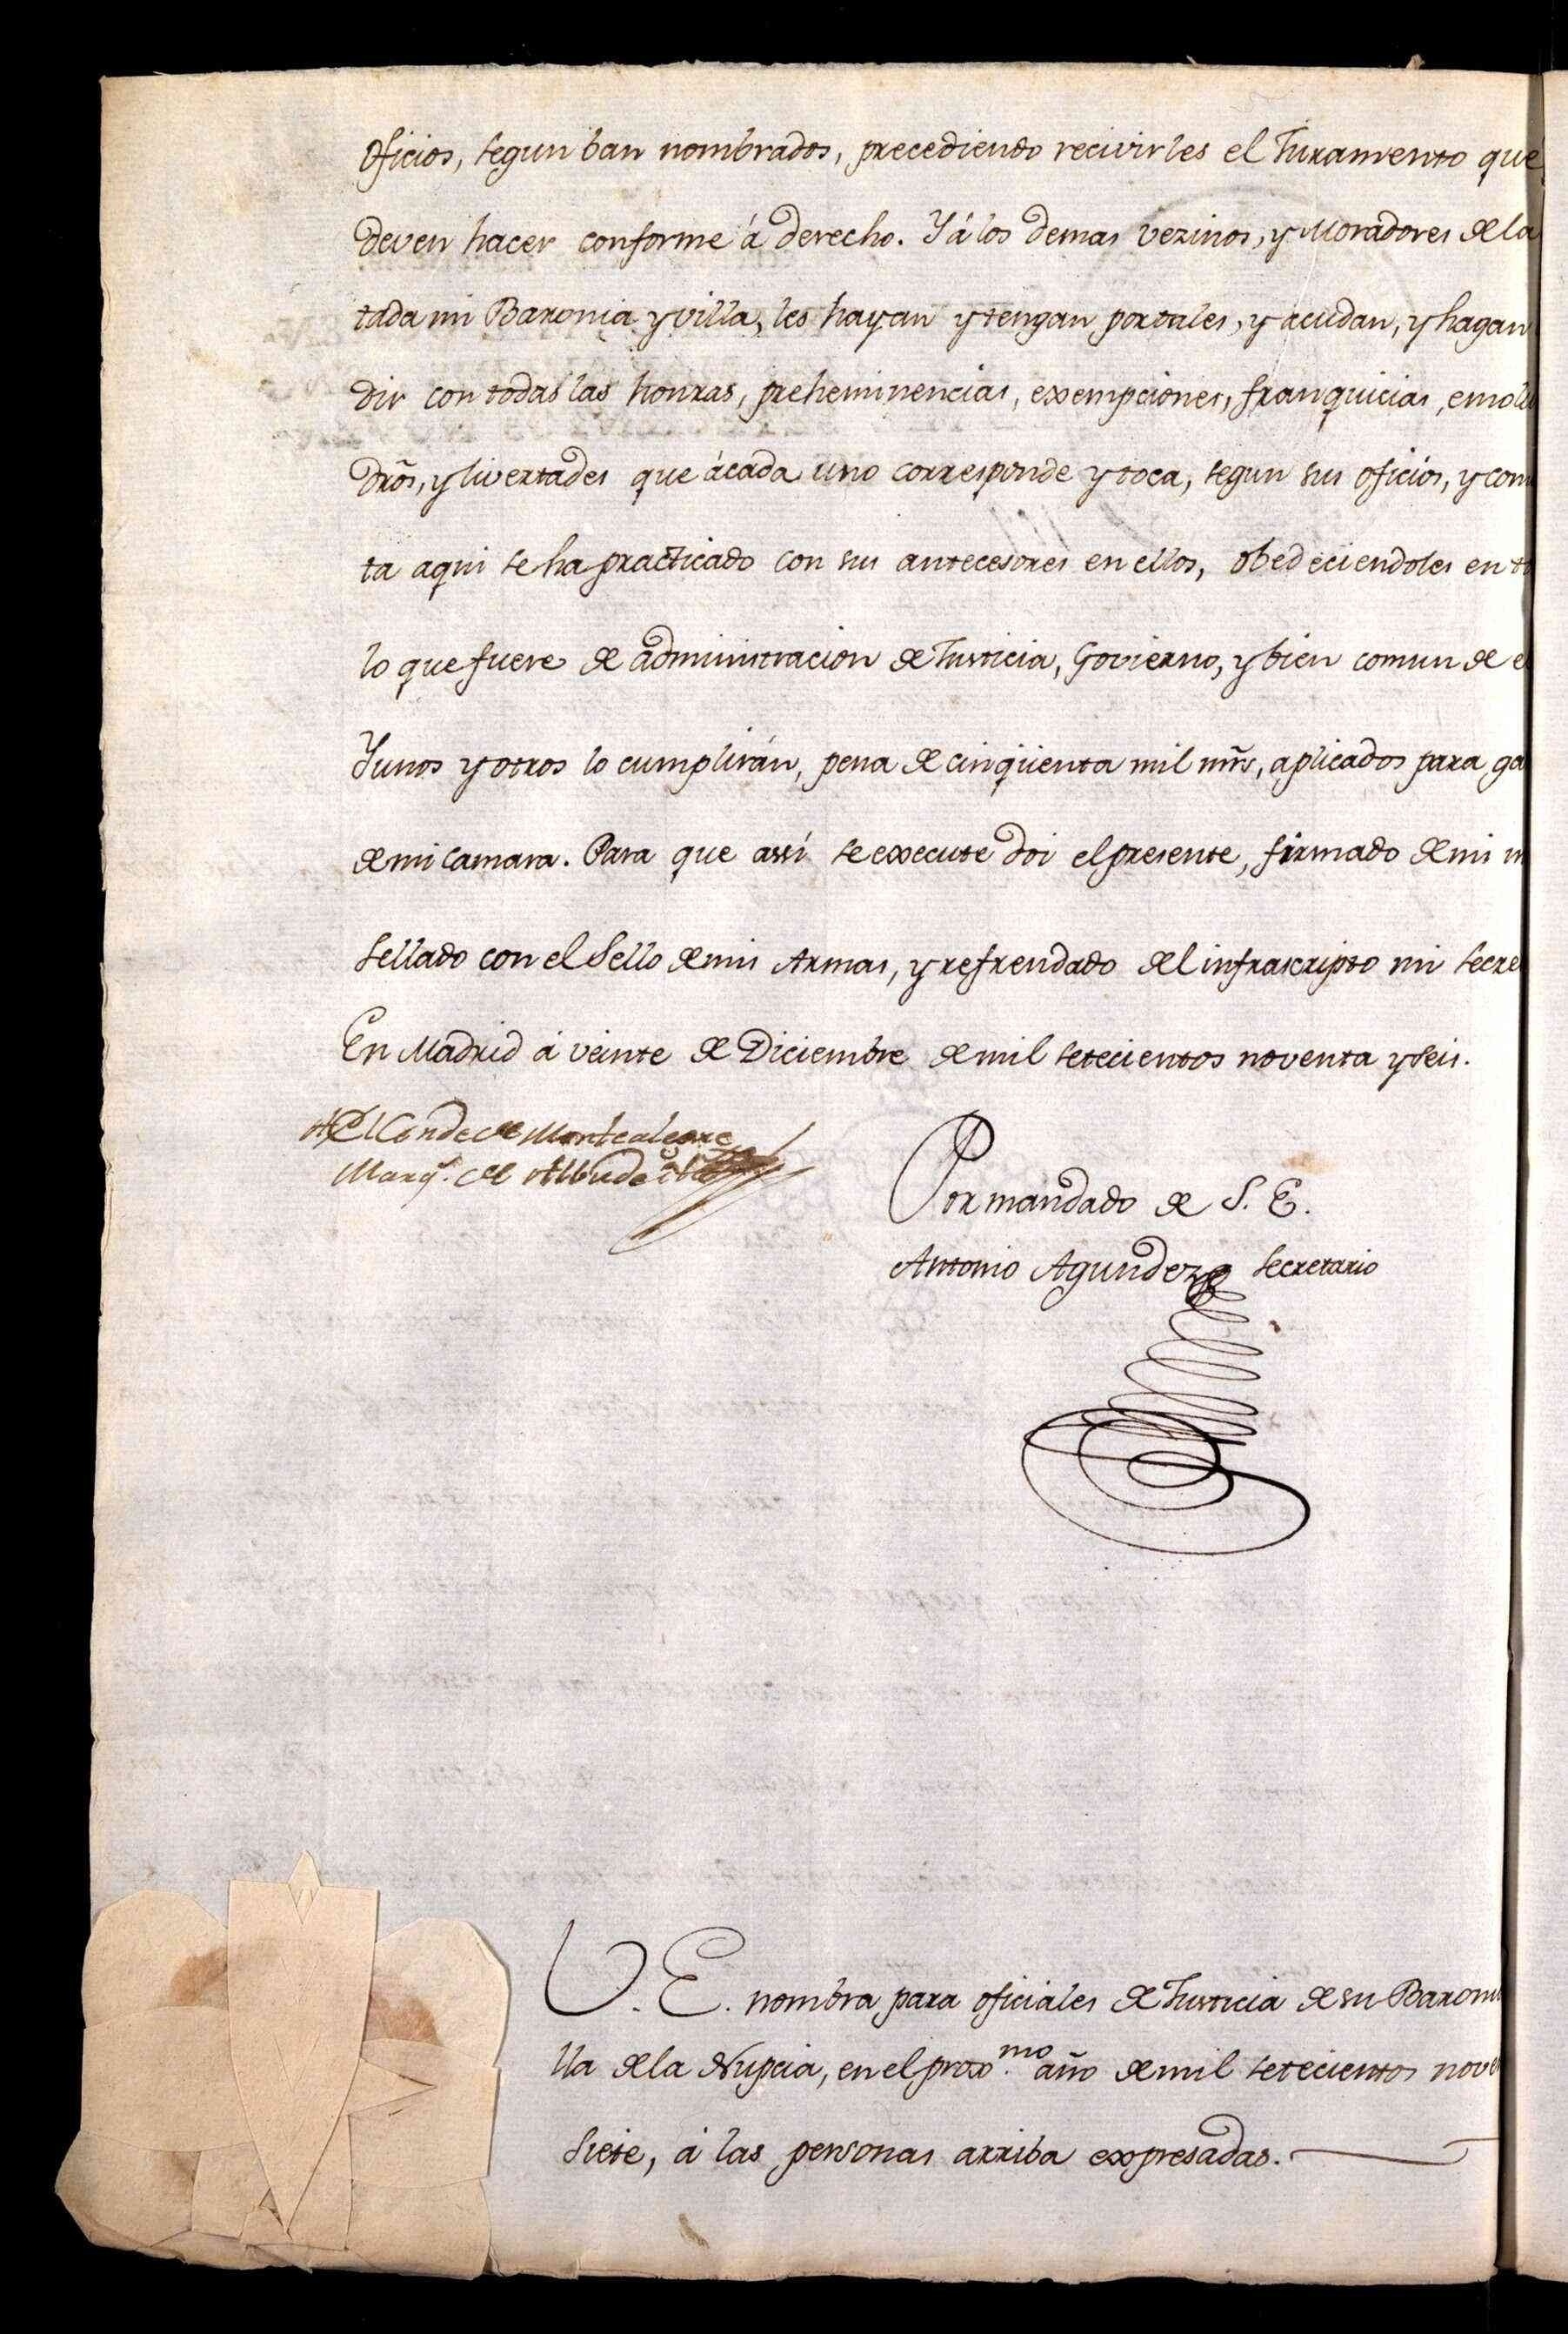 oficios, segun ban nombrados, precediendo recivirles el Juramento que
deven hacer conforme á derecho. Y á los demas vezinos, y Moradores de la
tada mi Baronia y villa, les hayan y tengan por tales, y acudan, y hagan
dir con todas las honras, preheminencias, exempciones, franquicias, emolu
dr̃os, y livertades que á cada uno corresponde y toca, segun sus oficios, y com
ta aqui se ha practicado con sus antecesores en ellos, obedeciendoles en to
lo que fuere de administracion de Justicia, Govierno, y bien comun de e
Y unos y otros lo cumplirán, pena de cinqüenta mil mr̃s, aplicados para ga
de mi camara. Para que assí se execute doi el presente, firmado de mi m
sellado con el Sello de mis Armas, y refrendado del infrascripto mi Secre
En Madrid á veinte de Diciembre de mil setecientos noventa y seis.
El Conde de Montealegre
Marq.s de Albudeite
Por mandado de S. E.
Antonio Agundez Secretario
V. E. nombra para oficiales de Justicia de su Baroni
lla de la Nupcia, en el prox.mo año de mil setecientos nove
siete, á las personas arriba expresadas.